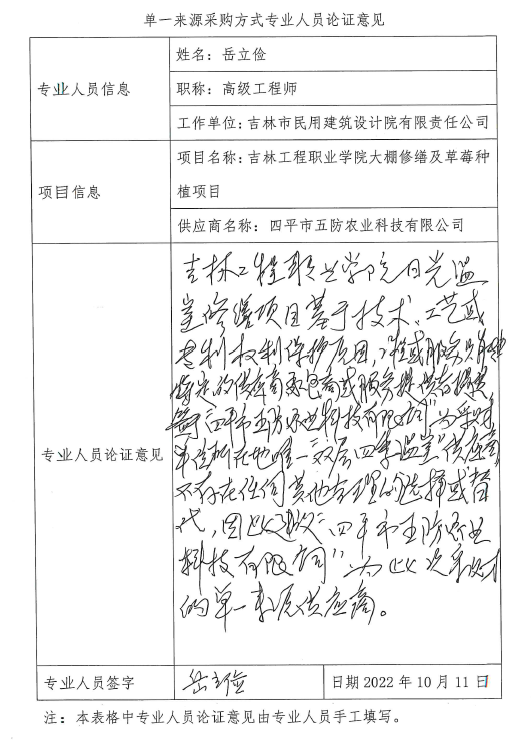 单一来源采购方式专业人员论证意见
专业人员信息
姓名：岳立俭
职称：高级工程师
工作单位：吉林市民用建筑设计院有限责任公司
项目信息
项目名称：吉林工程职业学院大棚修缮及草莓种
植项目
供应商名称：四平市五防农业科技有限公司
专业人员论证意见
吉林工程职业学院日光温
室修缮项目基于技术、工艺或
专利权利保护原因，或服务只能
特定的供应商承包商或服务提供者提供
四平市五防农业科技有限公司"为采购
单位所在地唯一双层四季温室"供应商
不存在任何其他合理的选择或替
代，因此建议"四平市五防农业
科技有限公司"为此次采购
的单一来源供应商。
专业人员签字
岳立俭
日期 2022 年 10 月 11 日
注：本表格中专业人员论证意见由专业人员手工填写。